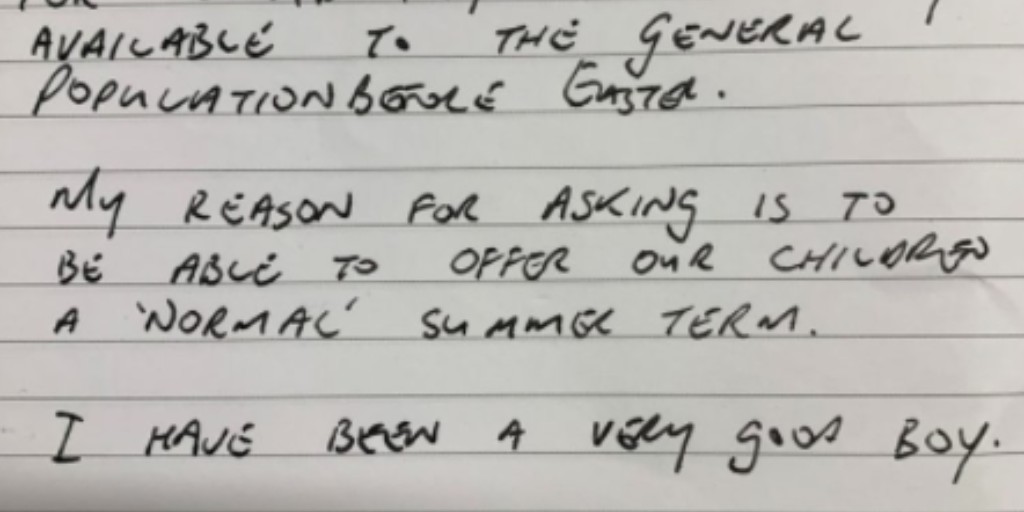 AVAILABLE TO THE GENERAL
POPULATION BEFORE EASTER.
My REASON FOR ASKING IS TO
BE ABLE TO OFFER OUR CHILDREN
A 'NORMAL' SUMMER TERM.
I HAVE BEEN A VERY GOOD BOY.